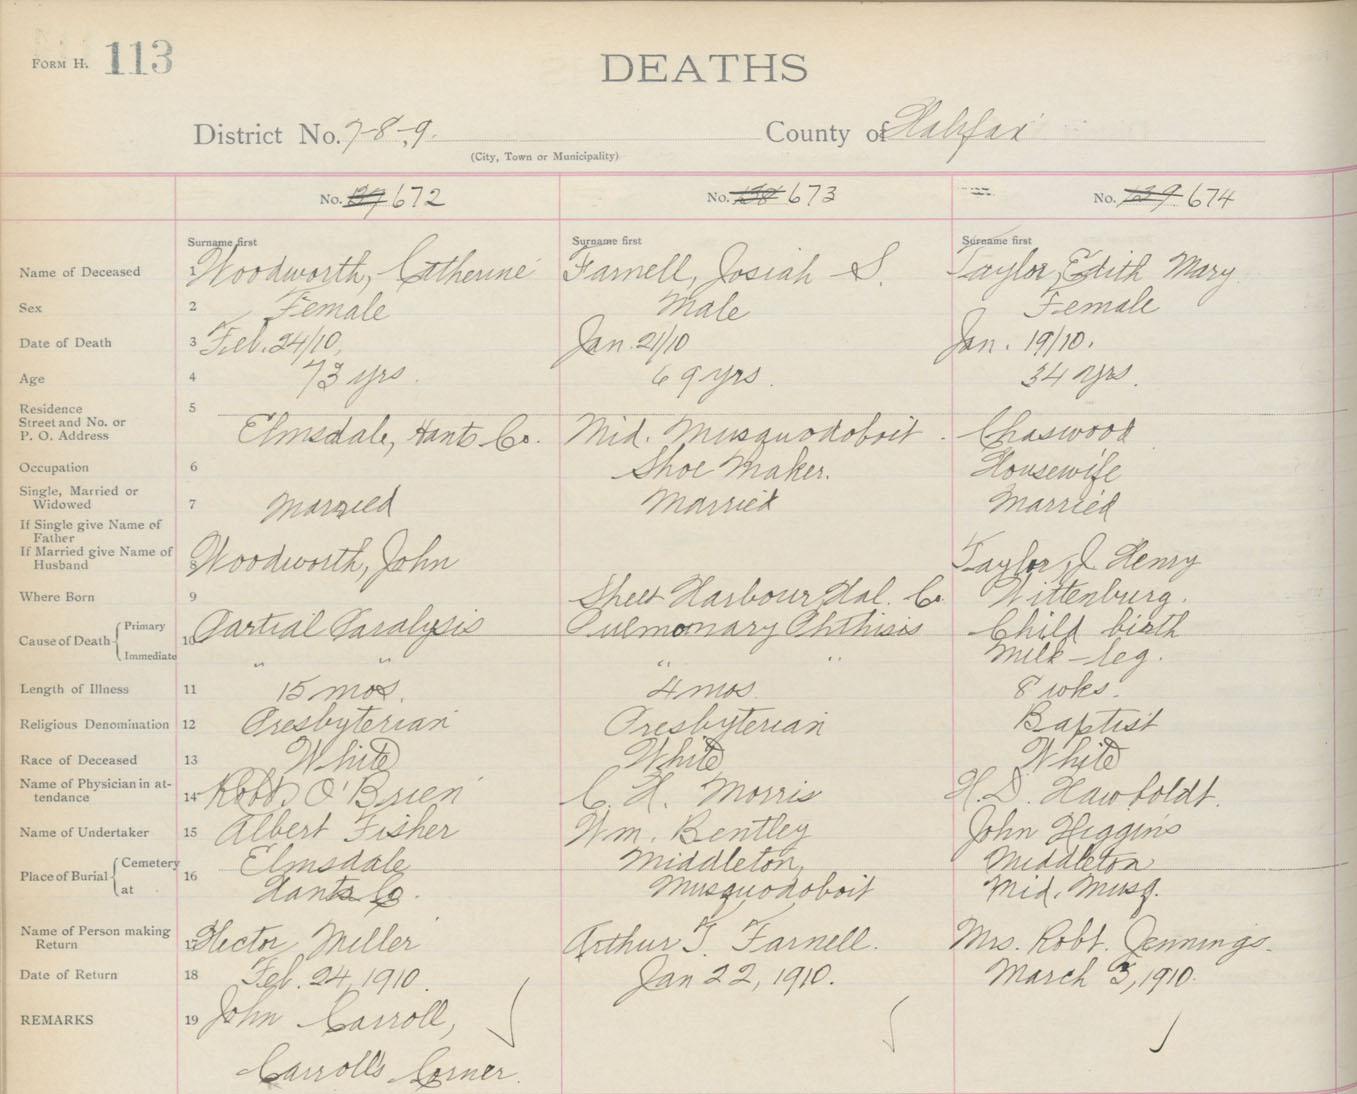 FORM H. 113
DEATHS
District No. 7-8-9. County of Halifax
(City, Town or Municipality)
No. 137 672 No. 138 673 No. 139 674
Surname first Surname first Surname first
Name of Deceased 1 Woodworth, Catherine Farnell, Josiah S. Taylor, Edith Mary
Sex 2 Female Male Female
Date of Death 3 Feb. 24/10. Jan. 21/10 Jan. 19/10.
Age 4 73 yrs. 69 yrs. 34 yrs.
Residence 5
Street and No. or
P. O. Address Elmsdale, Hants Co. Mid. Musquodoboit. Chaswood
Occupation 6 Shoe Maker. Housewife
Single, Married or
Widowed 7 Married Married Married
If Single give Name of
Father
If Married give Name of
Husband 8 Woodworth, John Taylor, J Henry
Where Born 9 Sheet Harbour Hal. Co. Wittenburg.
Cause of Death Primary 10 Partial Paralysis Pulmonary Phthisis Child birth
Immediate " " " " Milk-leg.
Length of Illness 11 15 mos. 4 mos. 8 wks.
Religious Denomination 12 Presbyterian Presbyterian Baptist
Race of Deceased 13 White White White
Name of Physician in at-
tendance 14 Robt O'Brien C. H. Morris H. D. Hawboldt.
Name of Undertaker 15 Albert Fisher Wm. Bentley John Higgins
Place of Burial Cemetery 16 Elmsdale Middleton, Middleton
at Hants Co. Musquodoboit Mid. Musq.
Name of Person making
Return 17 Hector Miller Arthur T. Farnell. Mrs. Robt. Jennings.
Date of Return 18 Feb. 24, 1910. Jan 22, 1910. March 3, 1910.
REMARKS 19 John Carroll,
Carroll's Corner.